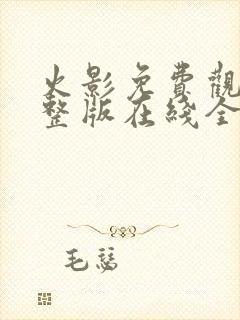 火影免費觀
整版在线全
毛嚞